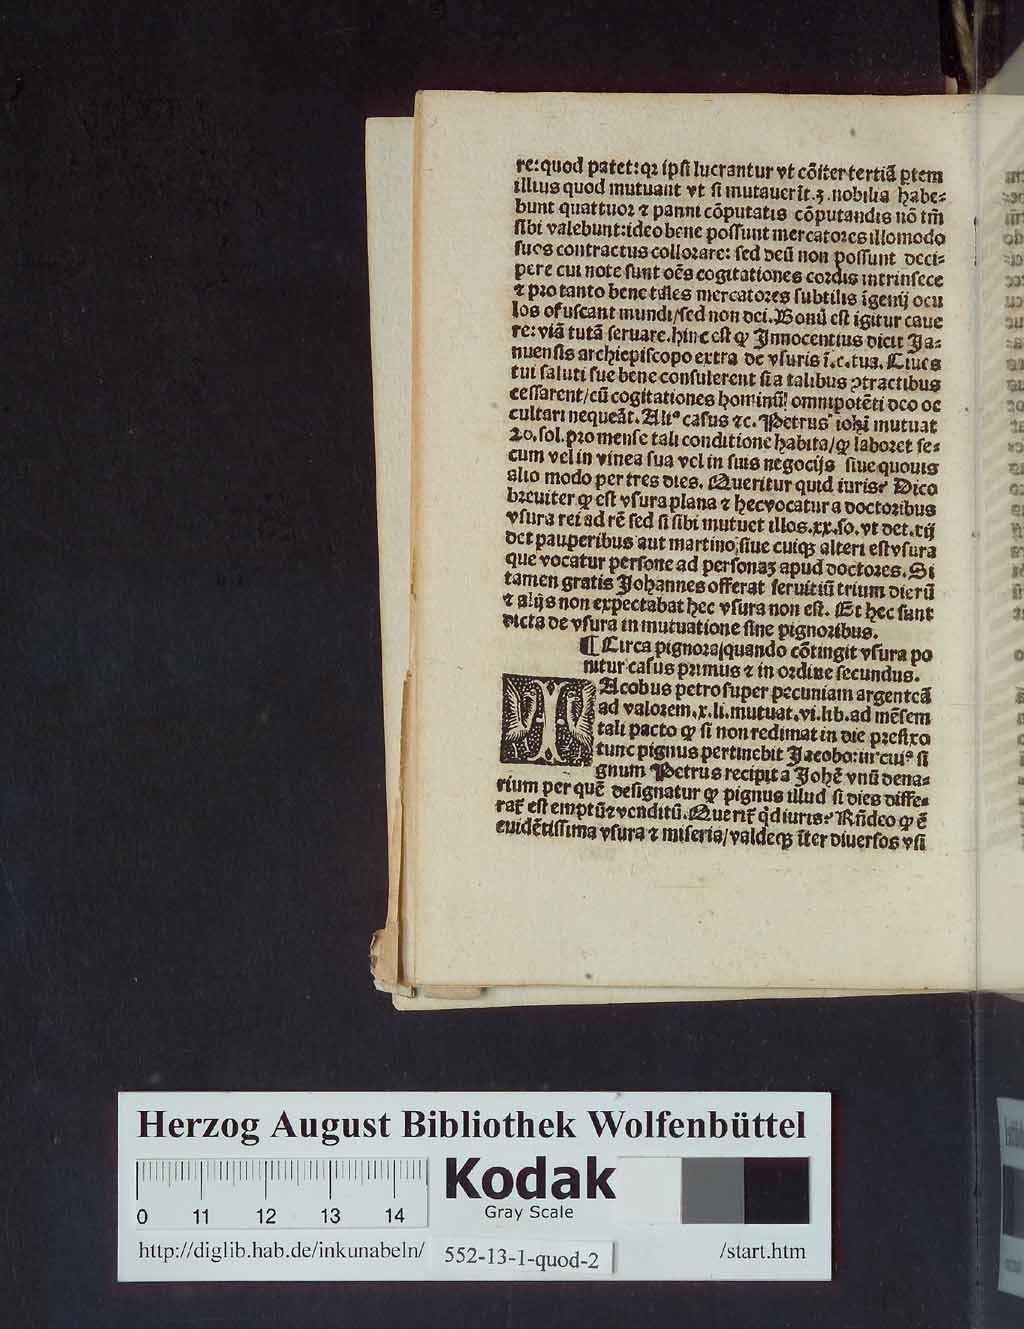 re:quod patet:qꝛ ipſi lucrantur vt cõiter tertiã ꝑtem
illius quod mutuant vt ſi mutauerīt.ʒ.nobilia habe⸗
bunt quattuoꝛ ⁊ panni cõputatis cõputandis nõ tm̃
ſibi valebunt:ideo bene poſſunt mercatoꝛes illo modo
ſuos contractus colloꝛare: ſed deũ non poſſunt deci⸗
pere cui note ſunt oẽs cogitationes coꝛdis intrinſece
⁊ pꝛo tanto bene tales mercatoꝛes ſubtilis ĩgenij ocu
los ofuſcant mundi/ſed non dei. Bonũ eſt igitur caue
re: viã tutã ſeruare. hinc eſt ꝙ Innocentius dicit Ja⸗
nuenſis archiepiſcopo extra de vſuris ĩ.c.tua. Ciues
tui ſaluti ſue bene conſulerent ſi a talibus ꝯtractibus
ceſſarent/cũ cogitationes hominũ omnipotẽti deo oc
cultari nequeãt. Aliᵒ caſus ⁊c. Petrus iohi mutuat
20.ſol.pꝛo menſe tali conditione habita/ꝙ laboꝛet ſe⸗
cum vel in vinea ſua vel in ſuis negocijs ſiue quouis
alio modo per tres dies. Queritur quid iuris? Dico
bꝛeuiter ꝙ eſt vſura plana ⁊ hec vocatur a doctoꝛibus
vſura rei ad rẽ ſed ſi ſibi mutuet illos.xx.ſo.vt det.xij
det pauperibus aut martino ſiue cuiqꝫ alteri eſt vſura
que vocatur perſone ad perſonaʒ apud doctoꝛes. Si
tamen gratis Johannes offerat ſeruitiũ trium dierũ
⁊ alijs non expectabat hec vſura non eſt. Et hec ſunt
dicta de vſura in mutuatione ſine pignoꝛibus.
¶ Circa pignoꝛa/quando cõtingit vſura po
nitur caſus pꝛimus ⁊ in oꝛdine ſecundus.
IAcobus petro ſuper pecuniam argenteã
ad valoꝛem.x.li.mutuat.vi.lib.ad mẽſem
tali pacto ꝙ ſi non redimat in die pꝛefixo
tunc pignus pertinebit Jacobo: in cuiᵒ ſi
gnum Petrus recipit a Johẽ vnũ dena⸗
rium per quẽ deſignatur ꝙ pignus illud ſi dies diffe⸗
rat̃ eſt emptũ ⁊ venditũ. Querit̃ qͥd iuris? Rñdeo ꝙ ẽ
euidẽtiſſima vſura ⁊ miſeria/valdeqꝫ ĩter diuerſos vſi
Herzog August Bibliothek Wolfenbüttel
Kodak
Gray Scale
0 11 12 13 14
http://diglib.hab.de/inkunabeln/ 552-13-1-quod-2 /start.htm